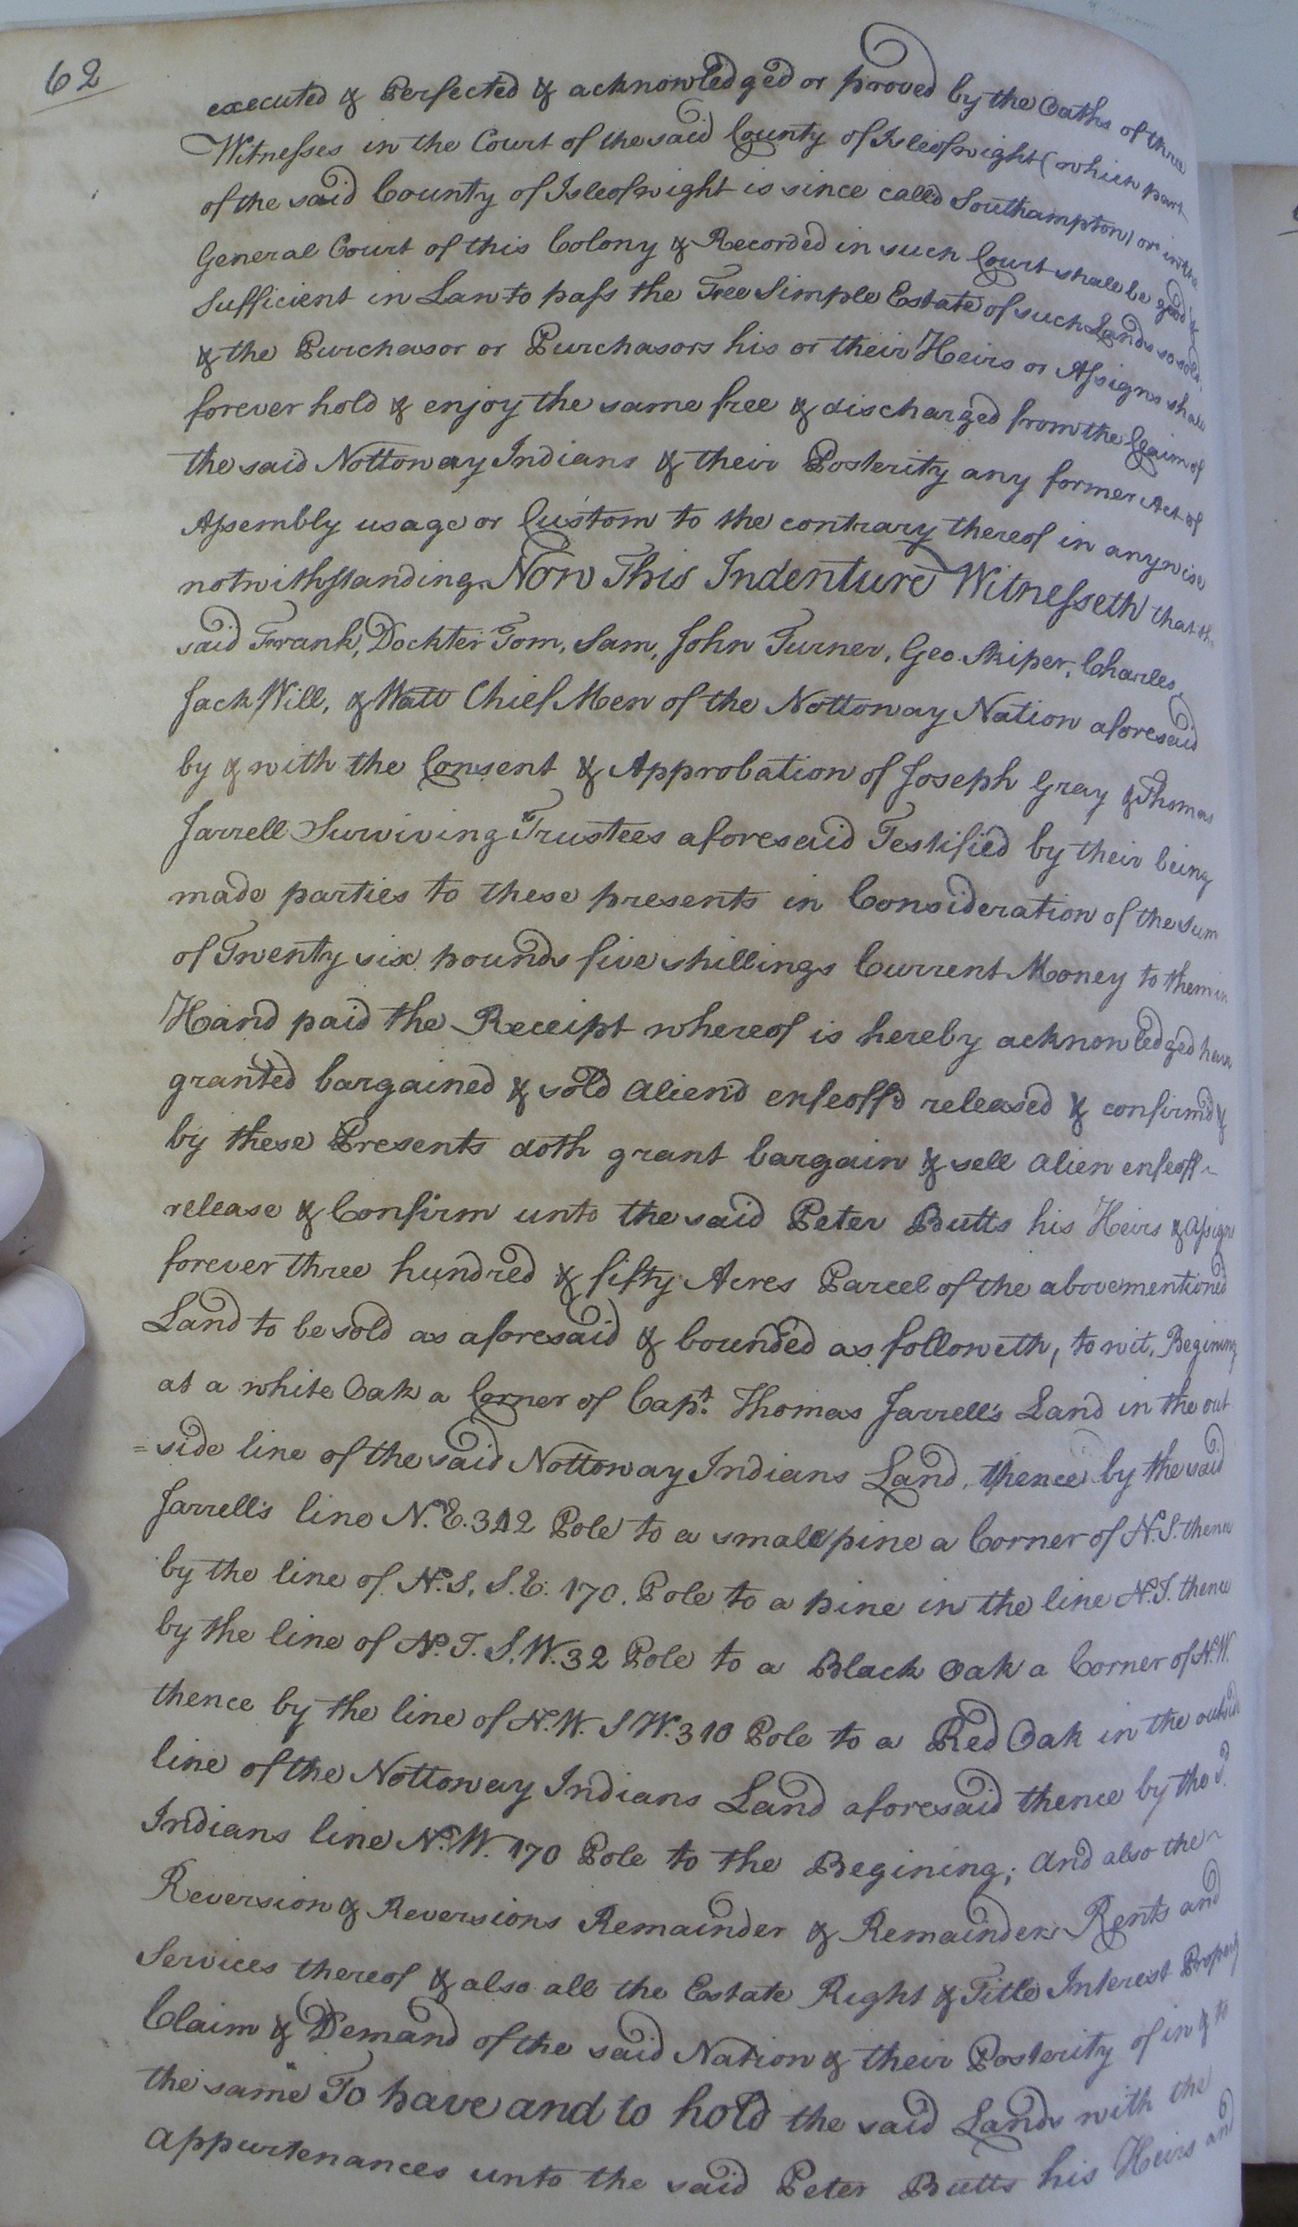 62
executed & Perfected & acknowledged or proved by the Oaths of three
Witnesses in the Court of the said County of Isleofwight (which part
of the said County of Isleofwight is since called Southampton) or in the
General Court of this Colony & Recorded in such Court shall be good &
Sufficient in Law to pass the Fee Simple Estate of such Lands so sold.
& the Purchasor or Purchasors his or their Heirs or Assigns shall
forever hold & enjoy the same free & discharged from the Claim of
the said Nottoway Indians & their Posterity any former Act of
Assembly usage or Custom to the contrary thereof in anywise
notwithstanding. Now This Indenture Witnesseth that the
said Frank, Dockter Tom, Sam, John Turner, Geo. Skiper, Charles,
Jack Will, & Watt Chief Men of the Nottoway Nation aforesaid
by & with the Consent & Approbation of Joseph Gray & Thomas
Jarrell Surviving Trustees aforesaid Testified by their being
made parties to these presents in Consideration of the sum
of Twenty six pounds five shillings Current Money to them in
Hand paid the Receipt whereof is hereby acknowledged have
granted bargained & sold aliend enfeoff'd released & confirmd &
by these Presents doth grant bargain & sell alien enfeoff
release & Confirm unto the said Peter Butts his Heirs & assigns
forever three hundred & fifty Acres Parcel of the abovementioned
Land to be sold as aforesaid & bounded as followeth, to wit, Begining
at a white Oak a Corner of Capt. Thomas Jarrell's Land in the out
=side line of the said Nottoway Indians Land, thence by the said
Jarrell's line N.E. 312 Pole to a small pine a Corner of N.S. thence
by the line of N.S, S.E. 170. Pole to a pine in the line N.T. thence
by the line of N.T. S.W. 32 Pole to a Black Oak a Corner of N.W.
thence by the line of N.W. S W. 310 Pole to a Red Oak in the outside
line of the Nottoway Indians Land aforesaid thence by the sd.
Indians line N.W. 170 Pole to the Begining; And also the
Reversion & Reversions Remainder & Remainders Rents and
Services thereof & also all the Estate Right & Title Interest Property
Claim & Demand of the said Nation & their Posterity of in & to
the same To have and to hold the said Lands with the
appurtenances unto the said Peter Butts his Heirs and